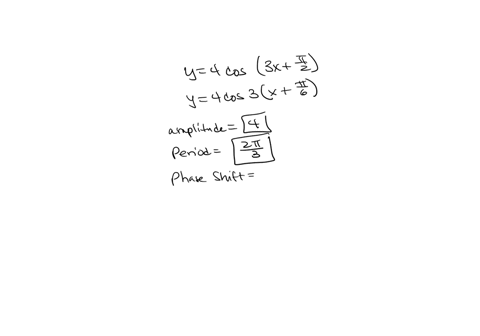 y=4 cos (3x+π/2)
y=4 cos 3(x+π/6)
amplitude= 4
Period= 2π/3
Phase Shift=